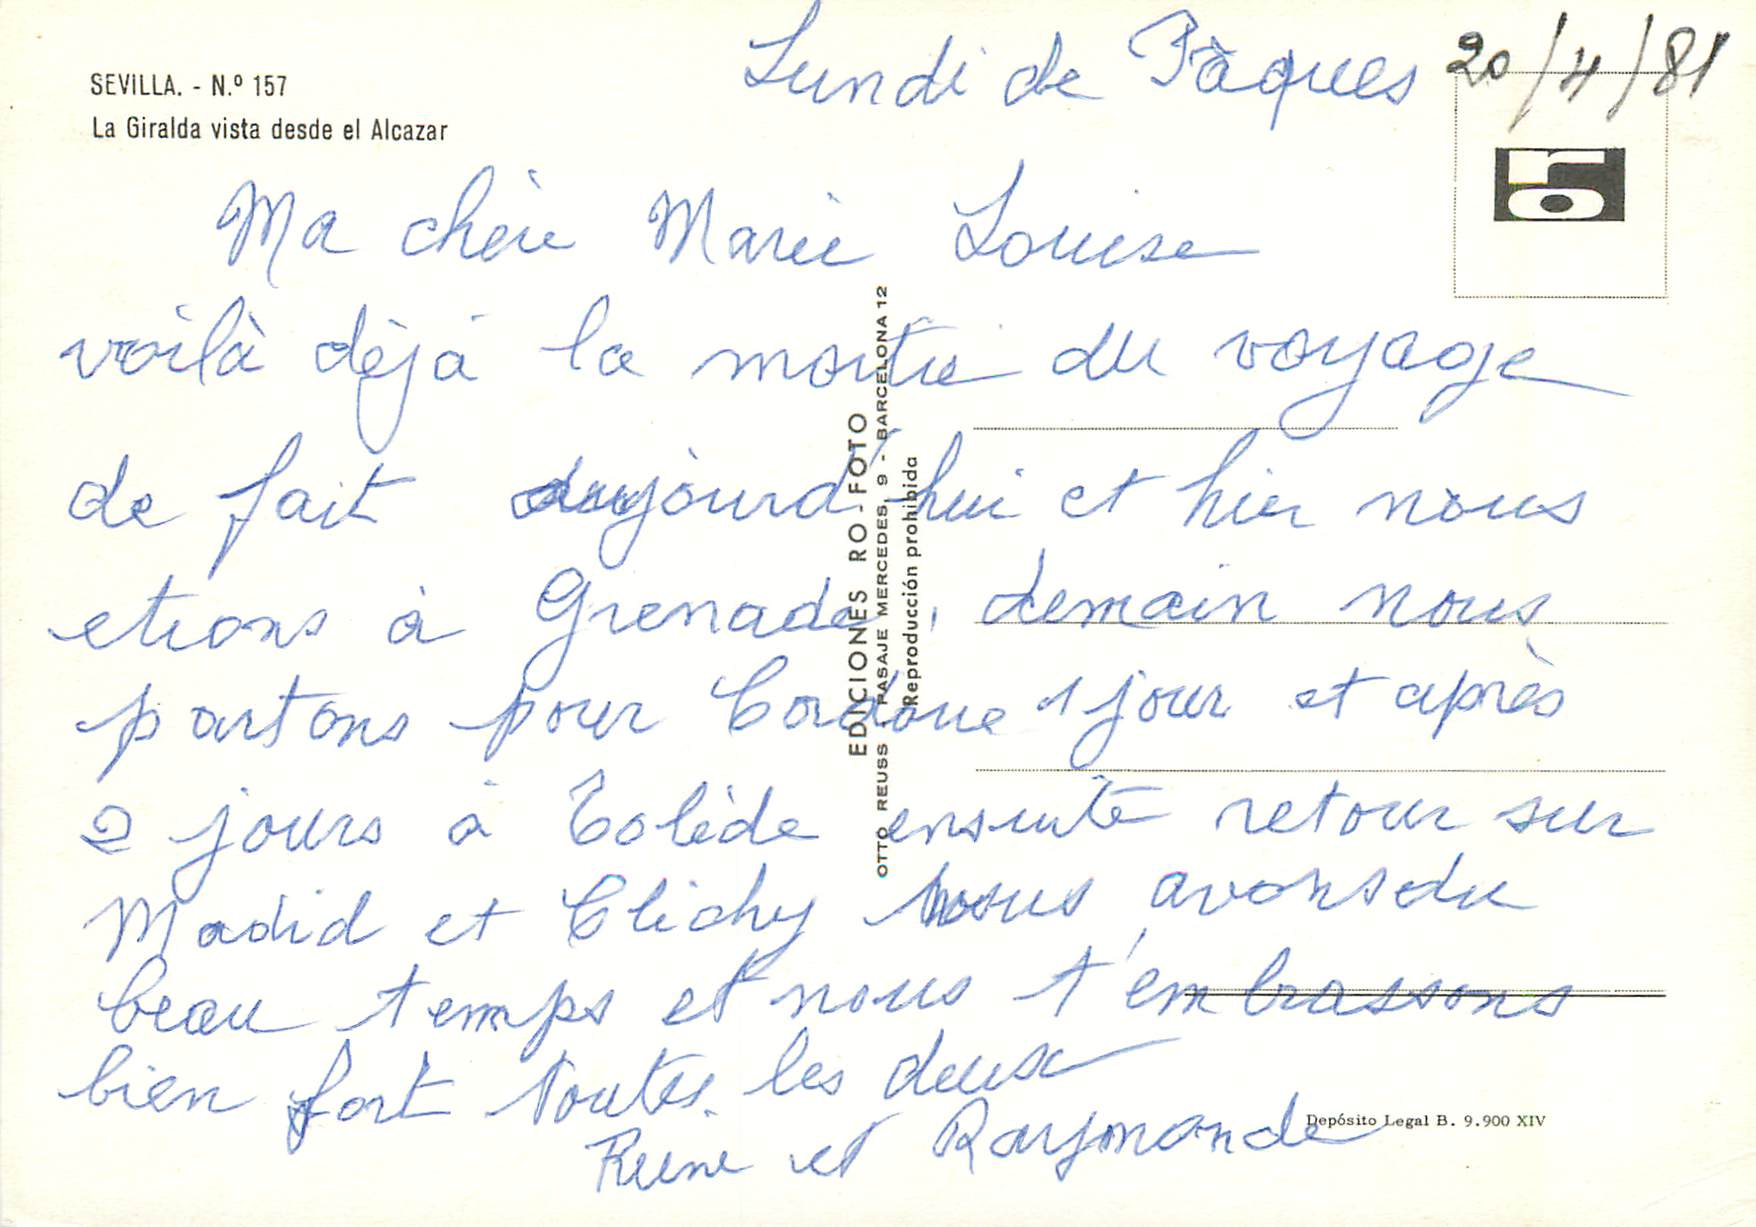 Lundi de Pàques 20/4/81
SEVILLA. - N.º 157
La Giralda vista desde el Alcazar
Ma chère Marie Louise
voilà déjà la moitie du voyage
de fait aujourd'hui et hier nous
etions à Grenade, demain nous
partons pour Cordoue 1 jour et après
2 jours à Tolède ensuite retour sur
Madid et Clichy nous avons du
beau temps et nous t'embrassons
bien fort toutes les deux
Reine et Raymonde
EDICIONES RO - FOTO
OTTO REUSS - PASAJE MERCEDES, 9 - BARCELONA 12
Reproducción prohibida
Depósito Legal B. 9.900 XIV